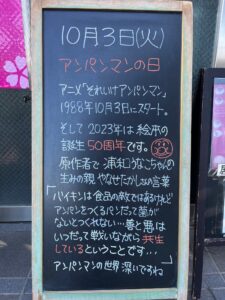 10月3日(火)
アンパンマンの日
アニメ「それいけアンパンマン」
1988年10月3日にスタート。
そして2023年は絵本の
誕生50周年です。
原作者で浦和うなこちゃんの
生みの親 やなせたかしさんの言葉
「バイキンは食品の敵ではあるけれど
アンパンをつくるパンだって菌が
ないとつくれない…善と悪は
いつだって戦いながら共生
しているということです…」
アンパンマンの世界 深いですね